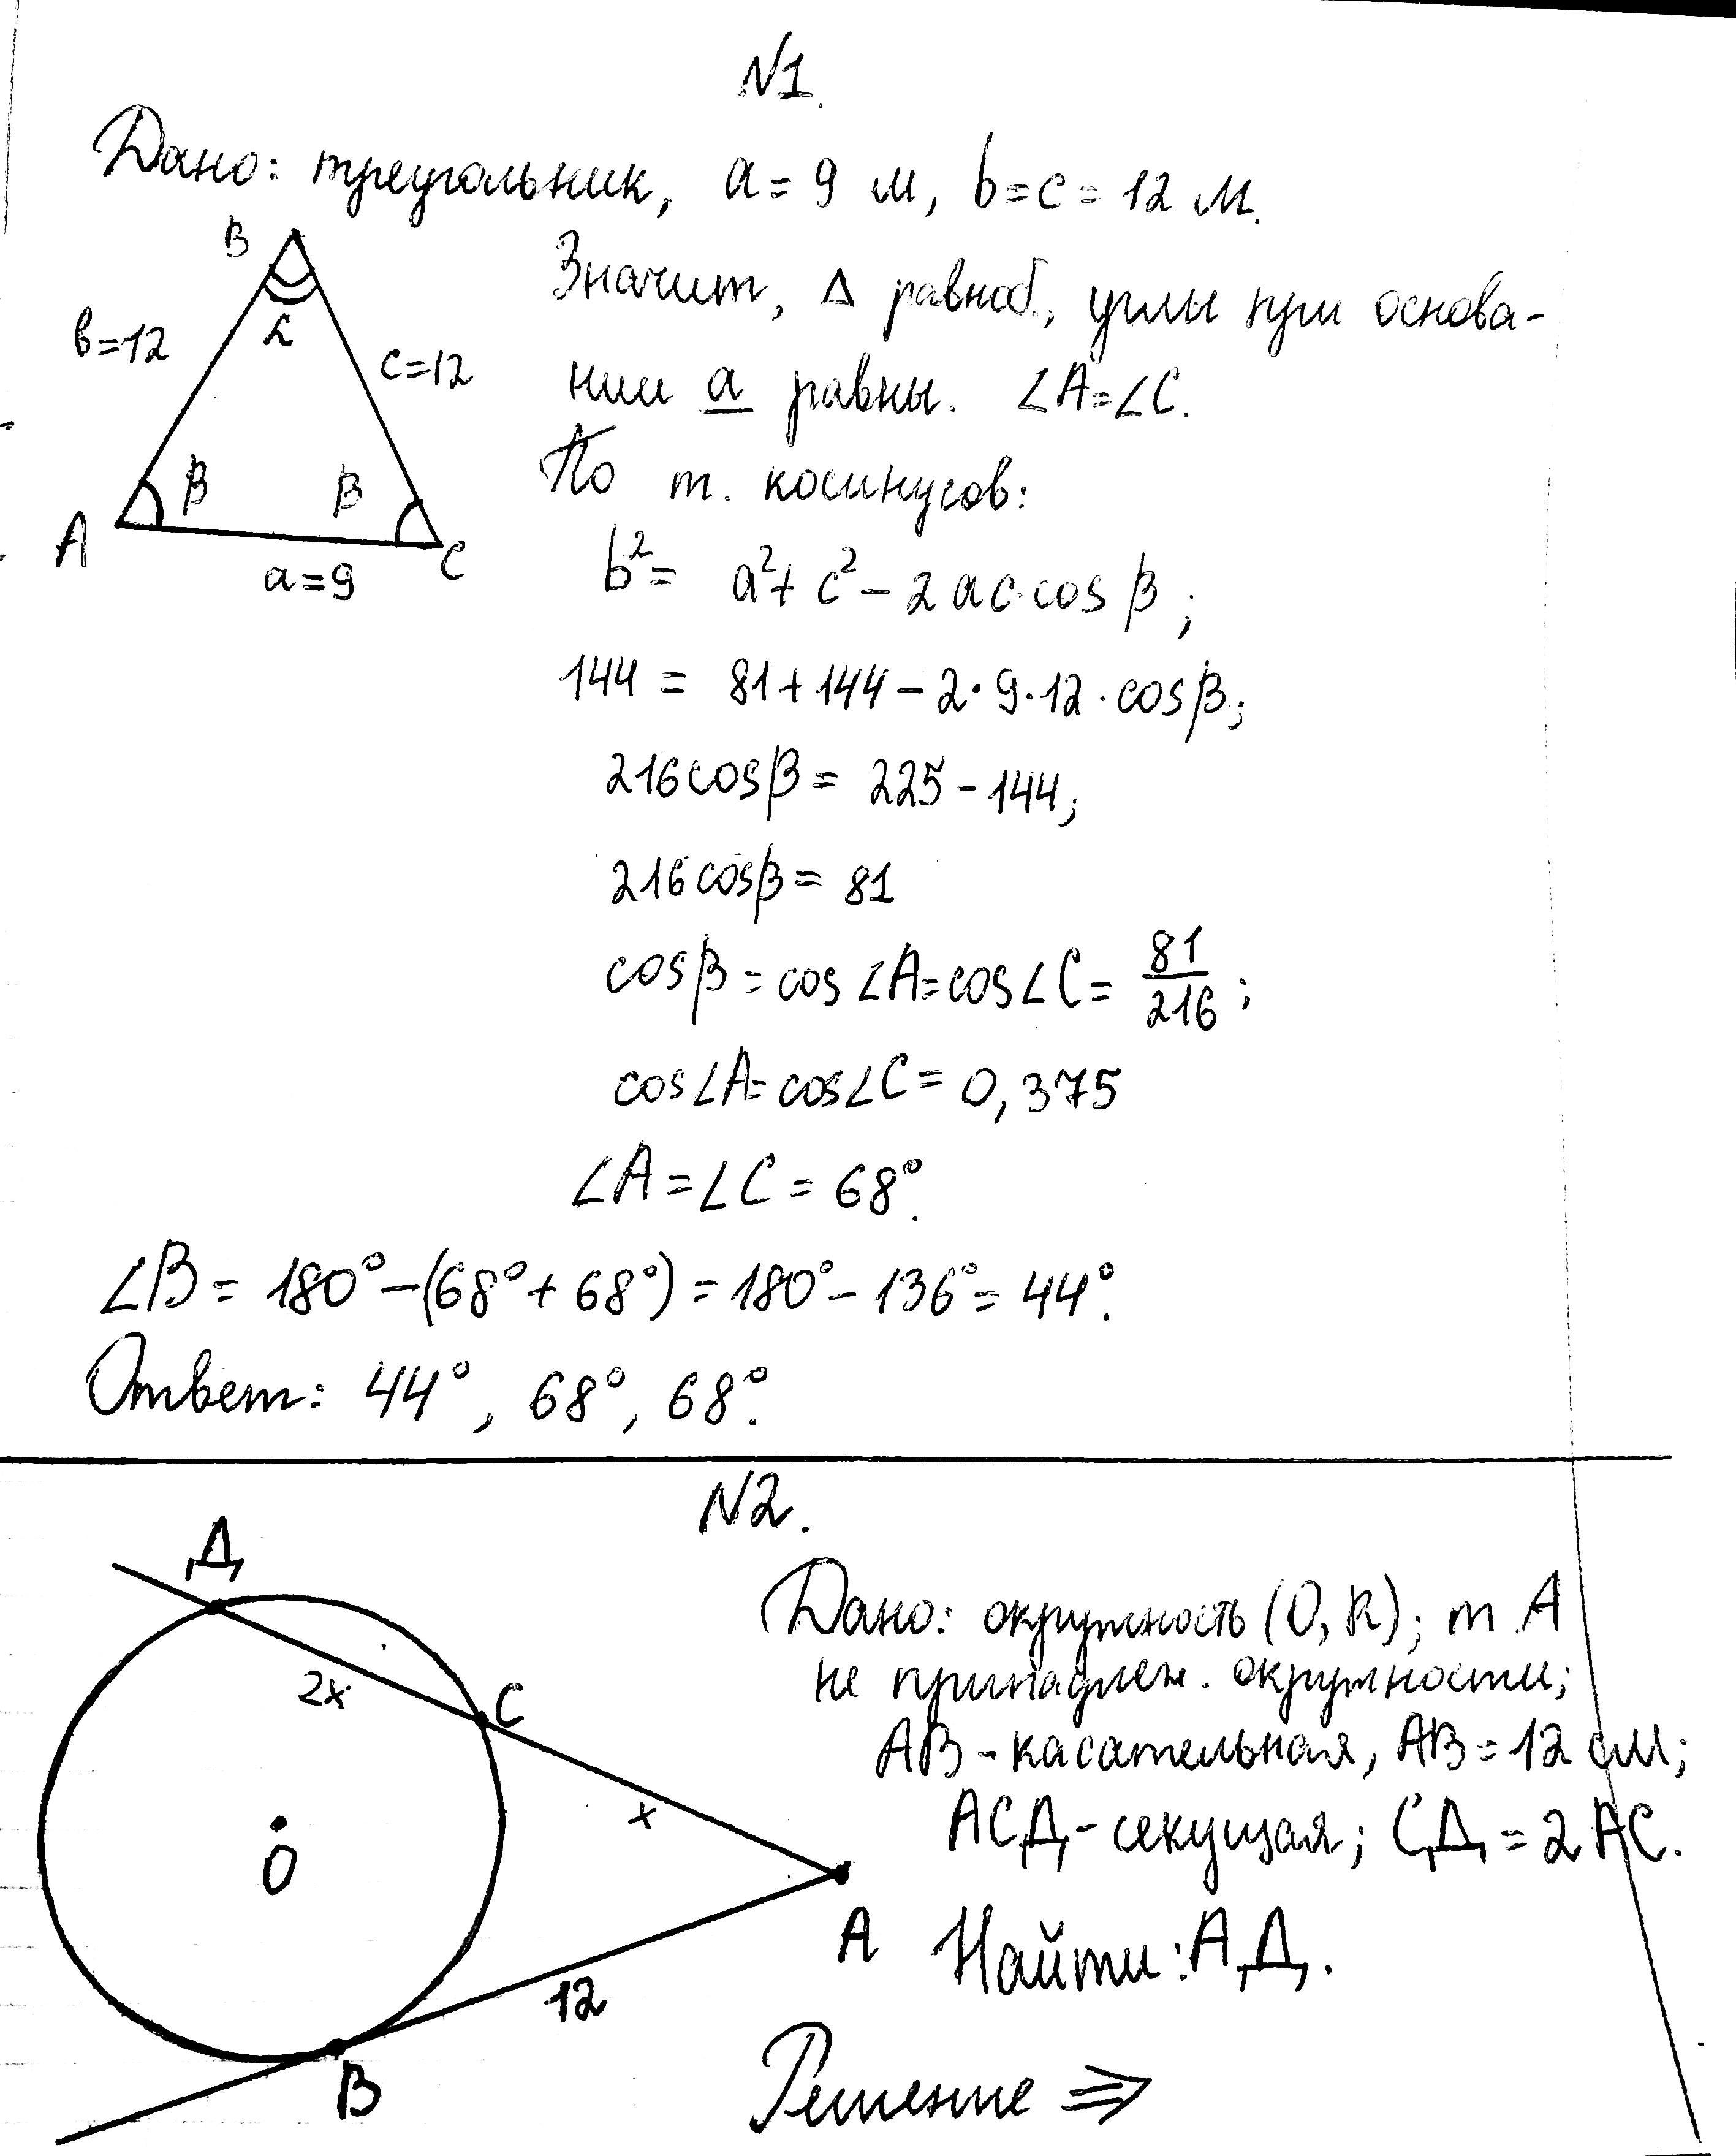 N1.
Дано: треугольник, a = 9 м, b = c = 12 м.
B
Значит, Δ равноб., углы при основа-
в=12
α
c=12
нии a равны. ∠A=∠C.
По т. косинусов:
β
β
A
C
a=9
b² = a² + c² - 2ac·cosβ;
144 = 81 + 144 - 2·9·12·cosβ;
216cosβ = 225 - 144;
216cosβ = 81
cosβ = cos∠A = cos∠C = 81/216;
cos∠A = cos∠C = 0,375
∠A = ∠C = 68°.
∠B = 180° - (68° + 68°) = 180° - 136° = 44°.
Ответ: 44°, 68°, 68°.
N2.
Д
Дано: окружность (O, R); т. A
2x
C
не принадлеж. окружности;
AB - касательная, AB = 12 см;
x
ACД - секущая; CД = 2AC.
O
A
Найти: AД.
12
B
Решение ⇒